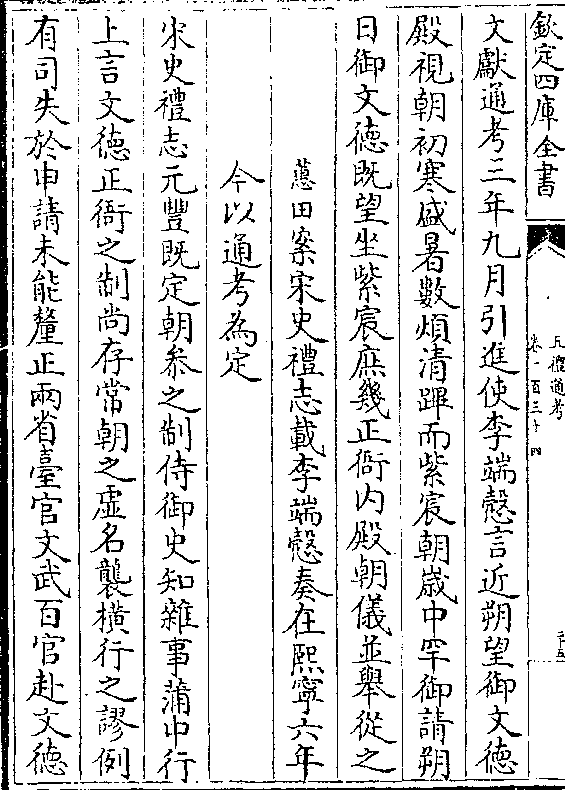 欽定四庫全書
五禮通考
卷一百三十四
文獻通考三年九月引進使李端慤言近朔望御文德
殿視朝初寒盛暑數煩清蹕而紫宸朝歲中罕御請朔
日御文德既望坐紫宸庶幾正衙内殿朝儀並舉從之
蕙田案宋史禮志載李端慤奏在熙寧六年
今以通考為定
宋史禮志元豐既定朝叅之制侍御史知雜事蒲中行
上言文德正衙之制尚存常朝之虛名襲横行之謬例
有司失於申請未能釐正兩省臺官文武百官赴文德